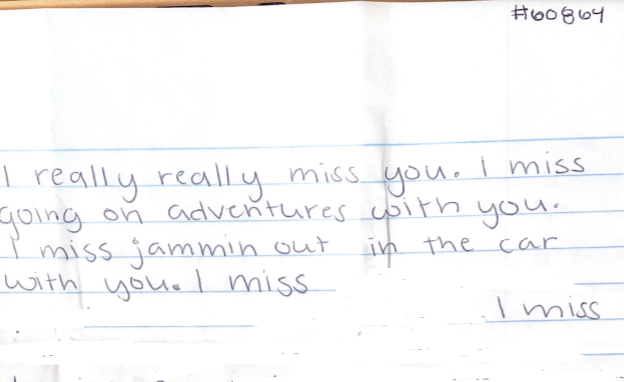 #60864
I really really miss you. I miss
going on adventures with you.
I miss jammin out in the car
with you. I miss
I miss